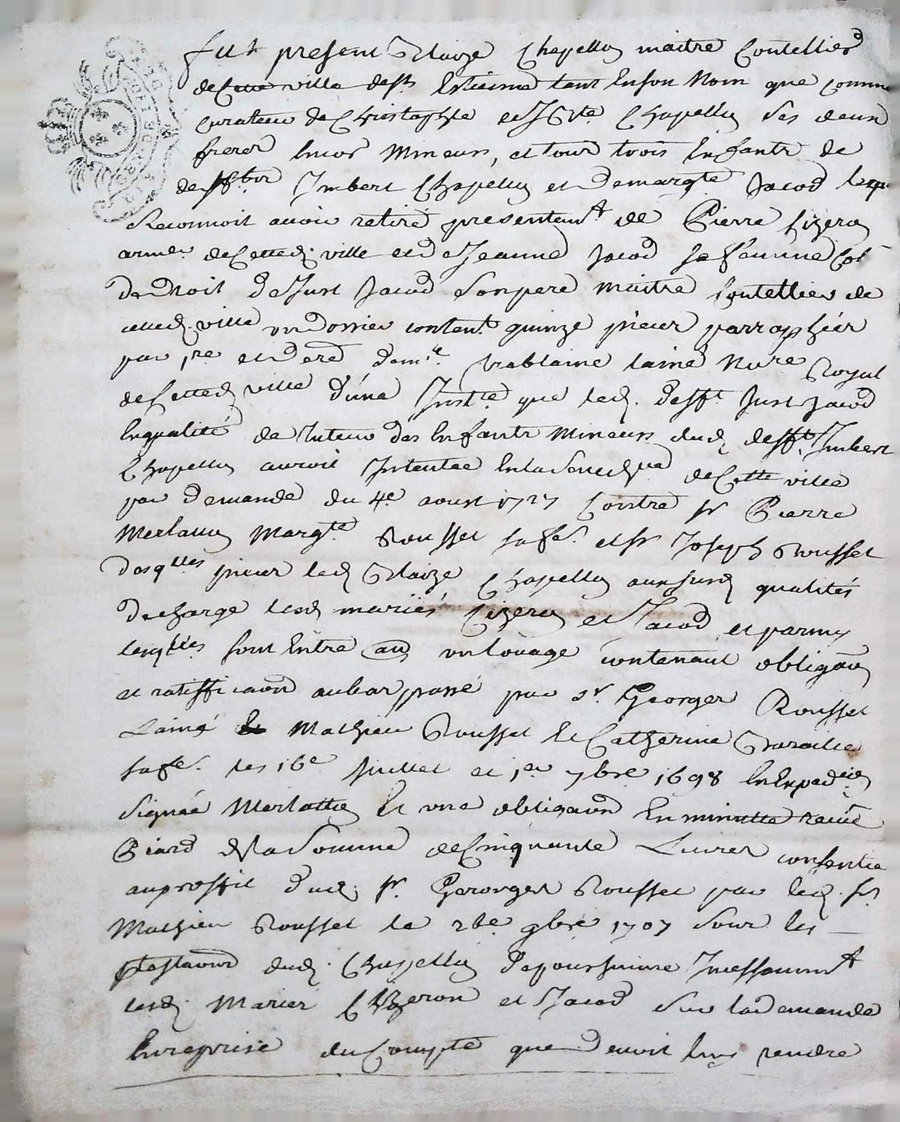 fut present Blaize Chapellon maitre Coutellier
de Cette ville de st Estienne tant En son Nom que comme
curateur de Christophle et Chapellon Ses deux
freres Encor Mineurs, et tous trois Enfants de
deffts Imbert Chapellon et de margte Jacod lequel
Reconnoit avoir retiré presentemt de Pierre Lizeron
armr de Cetted. ville et de Jeanne Jacod Sa femme
de droit de Just Jacod Son pere maitre Coutellier de
cetted. ville un dossier content quinze pieces parraphées
par pre et dere dud me laine Nore Royal
de Cetted ville d'une Instce que led. defft Just Jacod
En qualité de tuteur des Enfants Mineurs dud. defft Imbert
Chapellon auroit Intentée En la Senechée de Cette ville
par demande du 4e aoust 1727 Contre sr Pierre
Merlaton Margte Rousset sa fe. et sr Joseph Rousset
Desqlles pieces led Blaize Chapellon aux susd qualités
decharge lesd mariés Lizeron et Jacod, et parmy
lesqlles sont Entre autres un Louage contenant obligaon
et ratifficaon au bas passé par sr Georges Rousset
L'ainé Mathieu Rousset Et Catherine
sa fe. les 16e Juillet et 1er 7bre 1698 En Expedion
Signée Merlatton Et une obligaon En minutte receüe
Piard de la Somme de Cinquante Livres consentie
au proffit dud. sr Georonges Rousset par led. sr
Mathieu Rousset le 2be 9bre 1707 Sour les
dud. Chapellon de poursuivre Incessamt
lesd. Mariés Lizeron et Jacod Sur la demande
Entreprise du Compte que devoit luy rendre